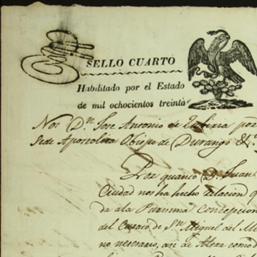 SELLO CUARTO
Habilitado por el Estado
de mil ochocientos treinta
Nos Dn. Jose Antonio de por
Sede Apostolica Obispo de Durango &
Por quanto Dn. Juan
Ciudad nos ha hecho relacion q
da ala Purisima Concepcion
del de Sn. Miguel del M
no necesario, asi de como d